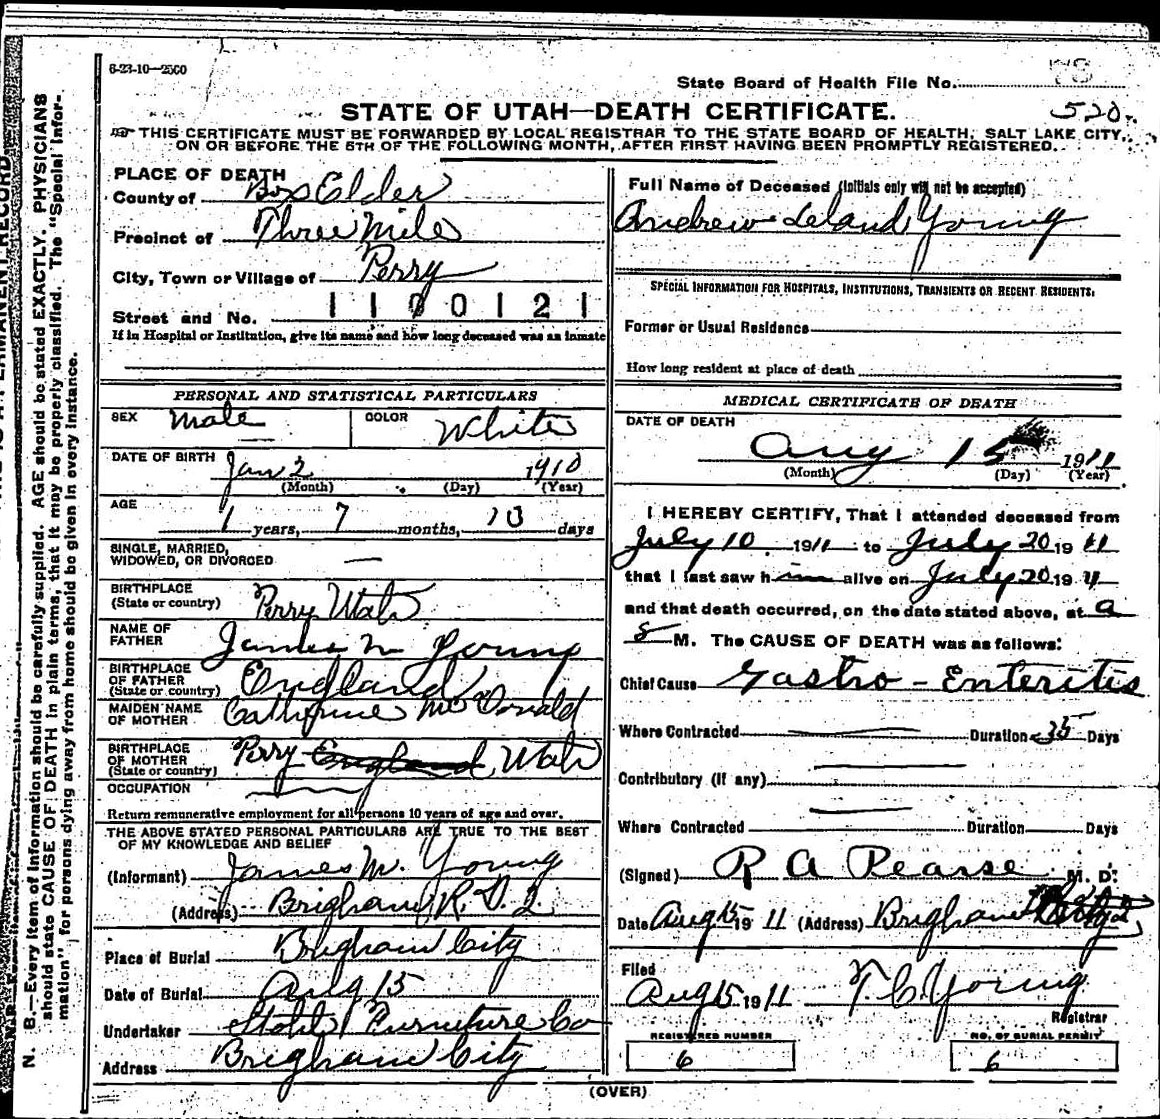 6-23-10—2500
State Board of Health File No. 78
STATE OF UTAH—DEATH CERTIFICATE. 520
THIS CERTIFICATE MUST BE FORWARDED BY LOCAL REGISTRAR TO THE STATE BOARD OF HEALTH, SALT LAKE CITY,
ON OR BEFORE THE 5TH OF THE FOLLOWING MONTH, AFTER FIRST HAVING BEEN PROMPTLY REGISTERED.
PLACE OF DEATH
County of Box Elder
Precinct of Three Mile
City, Town or Village of Perry
Street and No. 1100121
If in Hospital or Institution, give its name and how long deceased was an inmate
PERSONAL AND STATISTICAL PARTICULARS
SEX Male COLOR White
DATE OF BIRTH Jan 2 1910
(Month) (Day) (Year)
AGE
1 years, 7 months, 13 days
SINGLE, MARRIED,
WIDOWED, OR DIVORCED —
BIRTHPLACE
(State or country) Perry Utah
NAME OF
FATHER James M Young
BIRTHPLACE
OF FATHER
(State or country) England
MAIDEN NAME
OF MOTHER Catherine McDonald
BIRTHPLACE
OF MOTHER
(State or country) Perry England Utah
OCCUPATION
Return remunerative employment for all persons 10 years of age and over.
THE ABOVE STATED PERSONAL PARTICULARS ARE TRUE TO THE BEST
OF MY KNOWLEDGE AND BELIEF
(Informant) James M. Young
(Address) Brigham R. D. 2
Place of Burial Brigham City
Date of Burial Aug 15
Undertaker Stohl Furniture Co
Address Brigham City
Full Name of Deceased (Initials only will not be accepted)
Andrew Leland Young
SPECIAL INFORMATION FOR HOSPITALS, INSTITUTIONS, TRANSIENTS OR RECENT RESIDENTS.
Former or Usual Residence
How long resident at place of death
MEDICAL CERTIFICATE OF DEATH
DATE OF DEATH
Aug 15 1911
(Month) (Day) (Year)
I HEREBY CERTIFY, That I attended deceased from
July 10 1911 to July 20 1911
that I last saw him alive on July 20 1911
and that death occurred, on the date stated above, at a
5 M. The CAUSE OF DEATH was as follows:
Chief Cause Gastro - Enteritis
Where Contracted Duration 35 Days
Contributory (if any)
Where Contracted Duration Days
(Signed) R A Pearse M. D.
Date Aug 15 1911 (Address) Brigham
Filed
Aug 15 1911 T. C. Young
Registrar
REGISTERED NUMBER
6
NO. OF BURIAL PERMIT
6
(OVER)
N. B.—Every item of information should be carefully supplied. AGE should be stated EXACTLY. PHYSICIANS
should state CAUSE OF DEATH in plain terms, that it may be properly classified. The "Special Infor-
mation" for persons dying away from home should be given in every instance.